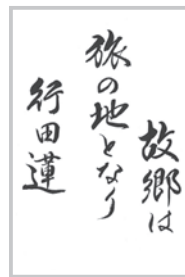 故郷は
旅の地となり
行田蓮